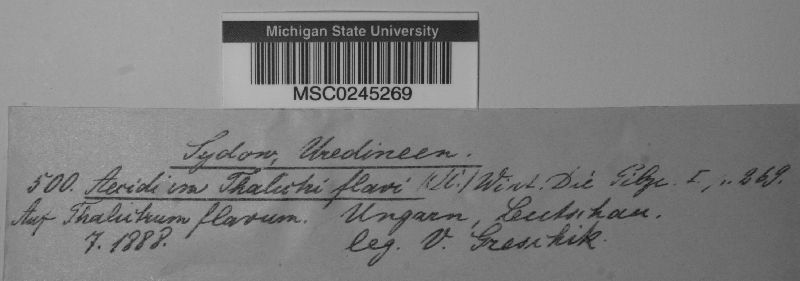 Michigan State University
MSC0245269
Sydow, Uredineen.
500. Aecidium Thalictri flavi (DC.) Wint. Die Pilze. I, p. 269.
Auf Thalictrum flavum. Ungarn, Leutschau.
7. 1888. leg. V. Greschik.